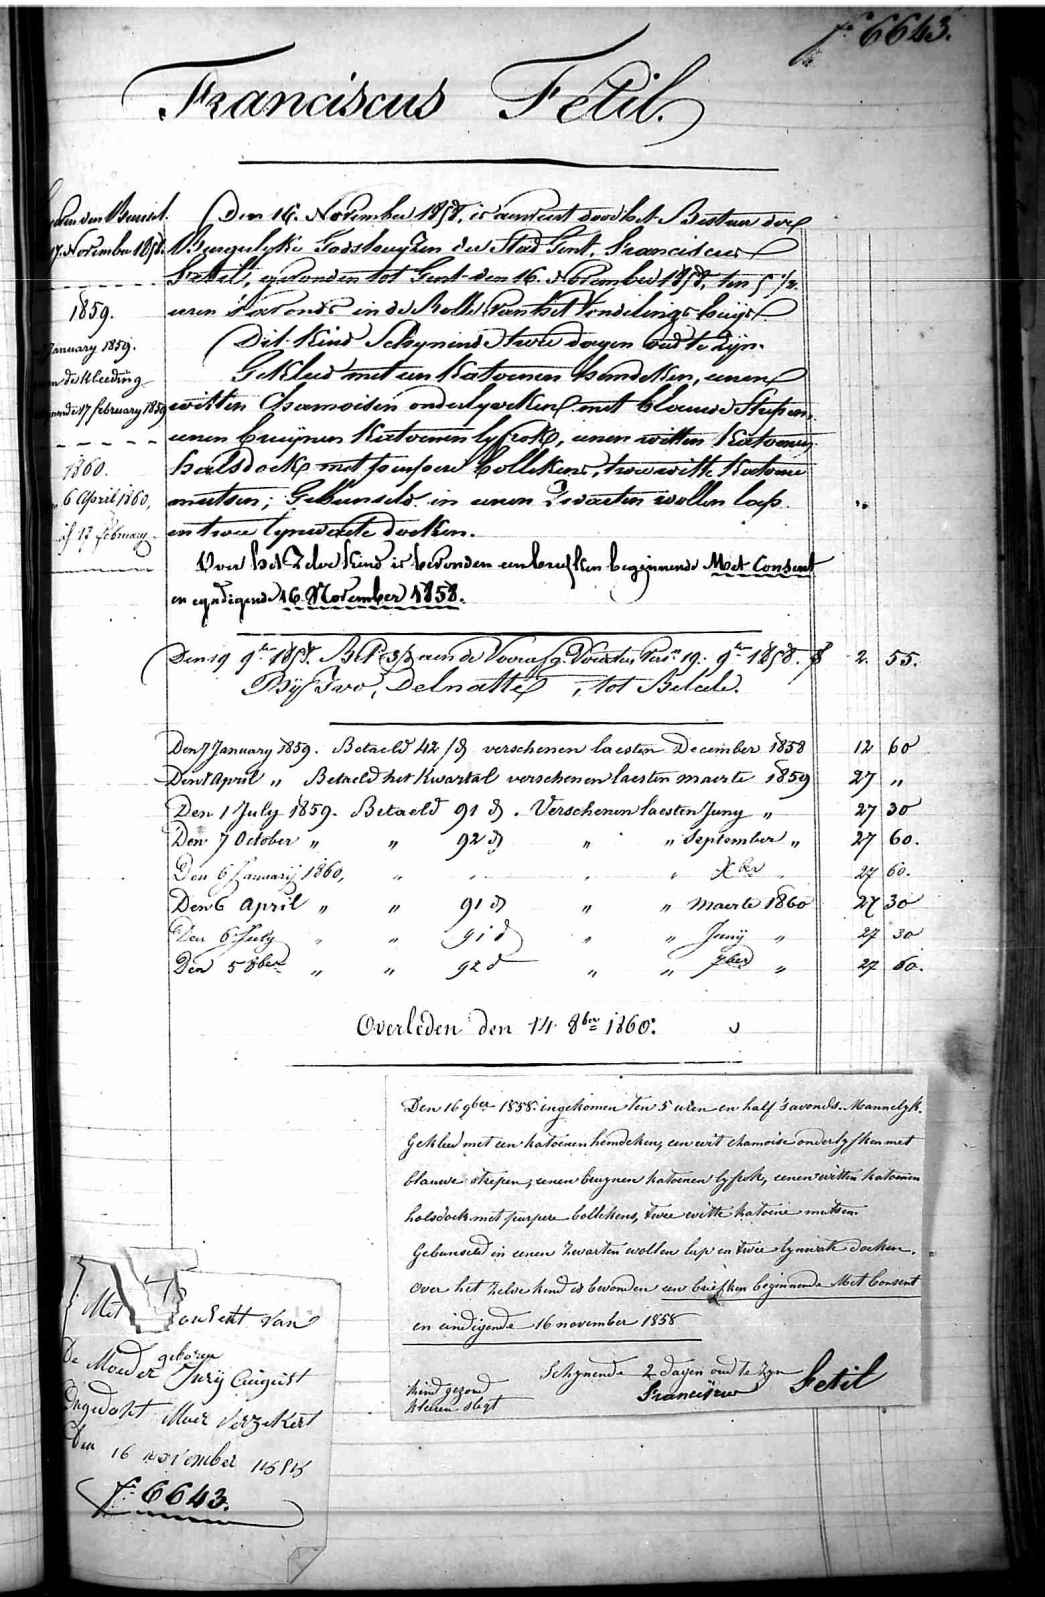 fo 6643.
Franciscus Fetil.
Den 16. November 1858, is aenveirt door het Bestuer der
Burgerlyke Godshuyzen der Stad Gent, Franciscus
Fetil, gevonden tot Gent den 16. November 1858, ten 5 1/2
uren 's avonds in de Rolle van het Vondelings huijs.
Dit Kind Schynende twee dagen oud te zijn.
Gekleed met een Katoenen hemdeken, eenen
witten Chamoisen onderlyveken met blauwe Strepen,
eenen bruynen Katoenen lyfrok, eenen witten Katoenen
halsdoek met purpere bollekens, twee witte Katoene
mutsen; Gebunseld in eenen Zwarten wollen lap
en twee lynwaete doeken.
Over het Zelve Kind is bevonden een briefken beginnende Met Consent
en eyndigende 16 November 1858.
17. November 1858.
1859.
January 1859.
de Kleeding
17 february 1859
1860.
6 April 1860,
17 february
Den 19 9ber 1858. 19. 9ber 1858. f 2. 55.
Bij Ivo, Delnatte, tot Belcele.
Den 7 January 1859. Betaeld 42 d verschenen laesten December 1858 12 60
Den 1 April " Betaeld het Kwartal verschenen laesten maerte 1859 27 "
Den 1 July 1859. Betaeld 91 d. Verschenen laesten Juny " 27 30
Den 7 October " " 92 d " " September " 27 60.
Den 6 January 1860, " " " " Xber " 27 60.
Den 6 April " " 91 d " " maerte 1860 27 30
Den 6 July " " 91 d " " Junij " 27 30
Den 5 8ber " " 92 d " " 7ber " 27 60.
Overleden den 14 8ber 1860.
Den 16 9ber 1858. ingekomen ten 5 uren en half 's avonds. Mannelyk.
Gekleed met een katoenen hemdeken, een wit chamoise onderlyfken met
blauwe strepen, eenen bruynen katoenen lyfrok, eenen witten katoenen
halsdoek met purpere bollekens, twee witte katoene mutsen
Gebunseld in eenen Zwarten wollen lap en twee lynwate doeken.
over het zelve kind is bevonden een briefken beginnende Met Consent
en eindigende 16 november 1858
Schynende 2 dagen oud te zyn
kind gezond
kleeren slegt
Franciscus Fetil
Met Consent van
De Moeder geboren
August
Maer Verzekert
Den 16 november 1858
fo 6643.